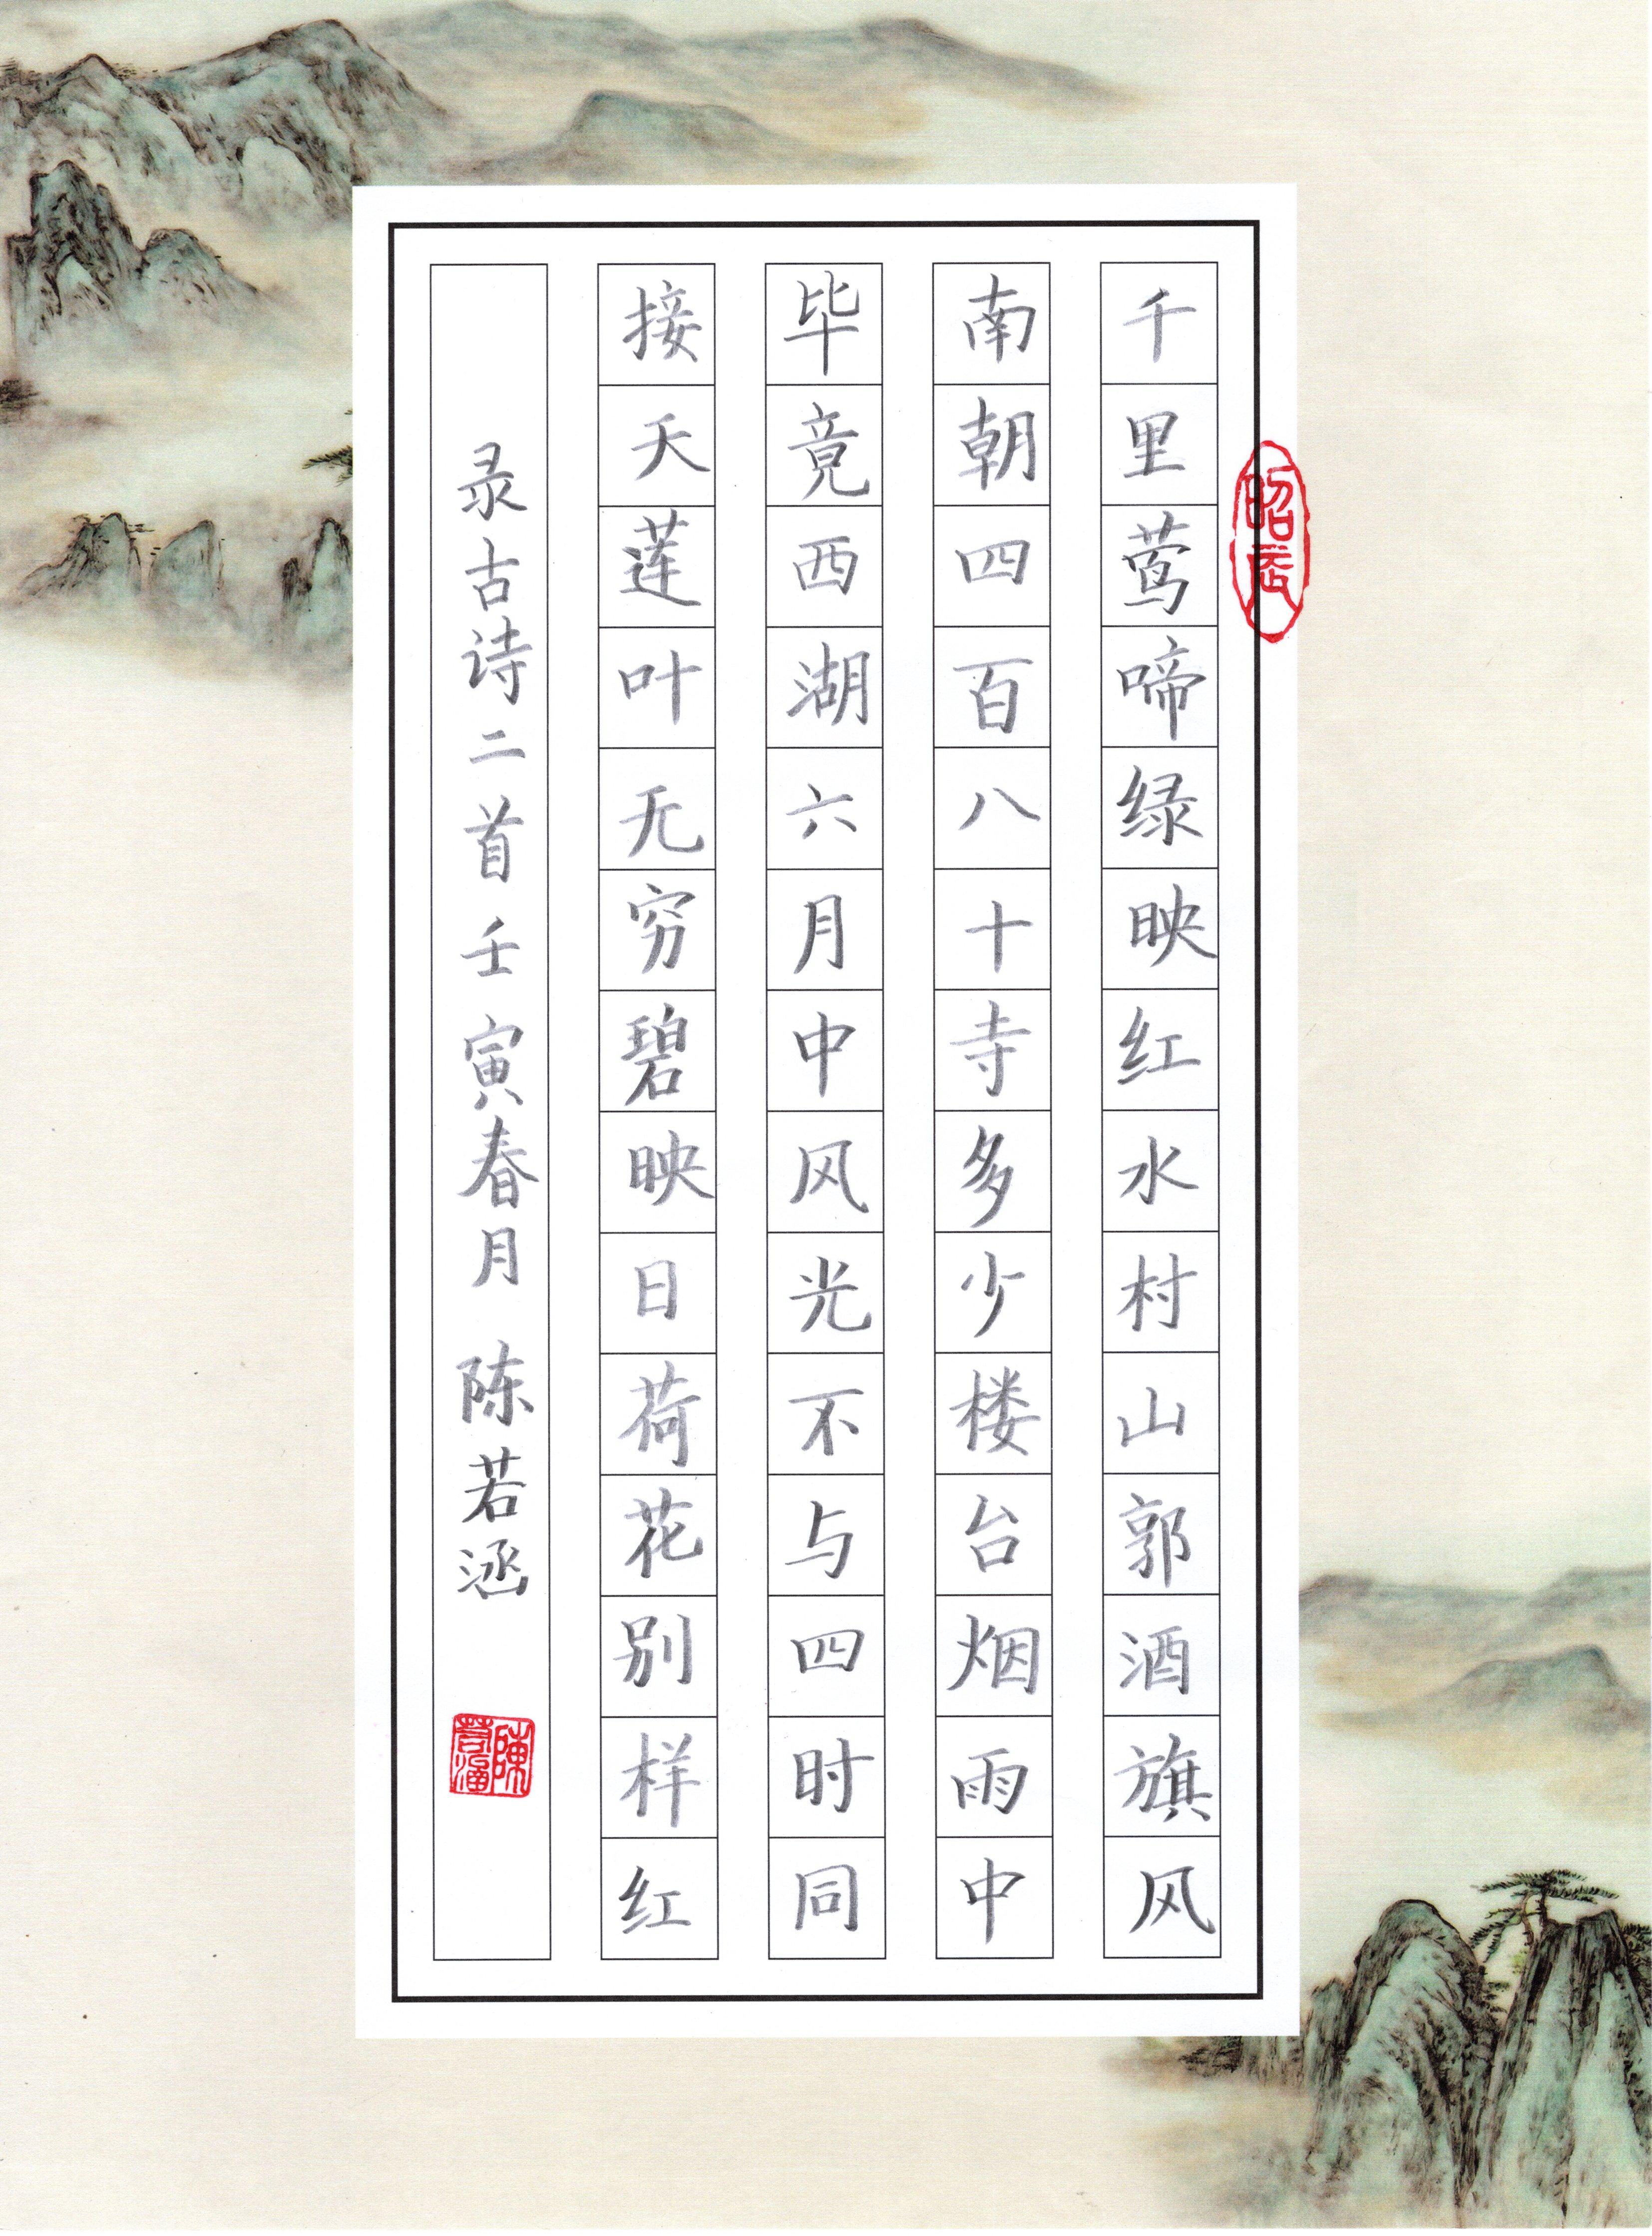 千里莺啼绿映红水村山郭酒旗风
南朝四百八十寺多少楼台烟雨中
毕竟西湖六月中风光不与四时同
接天莲叶无穷碧映日荷花别样红
录古诗二首 壬寅春月 陈若涵
陳若涵